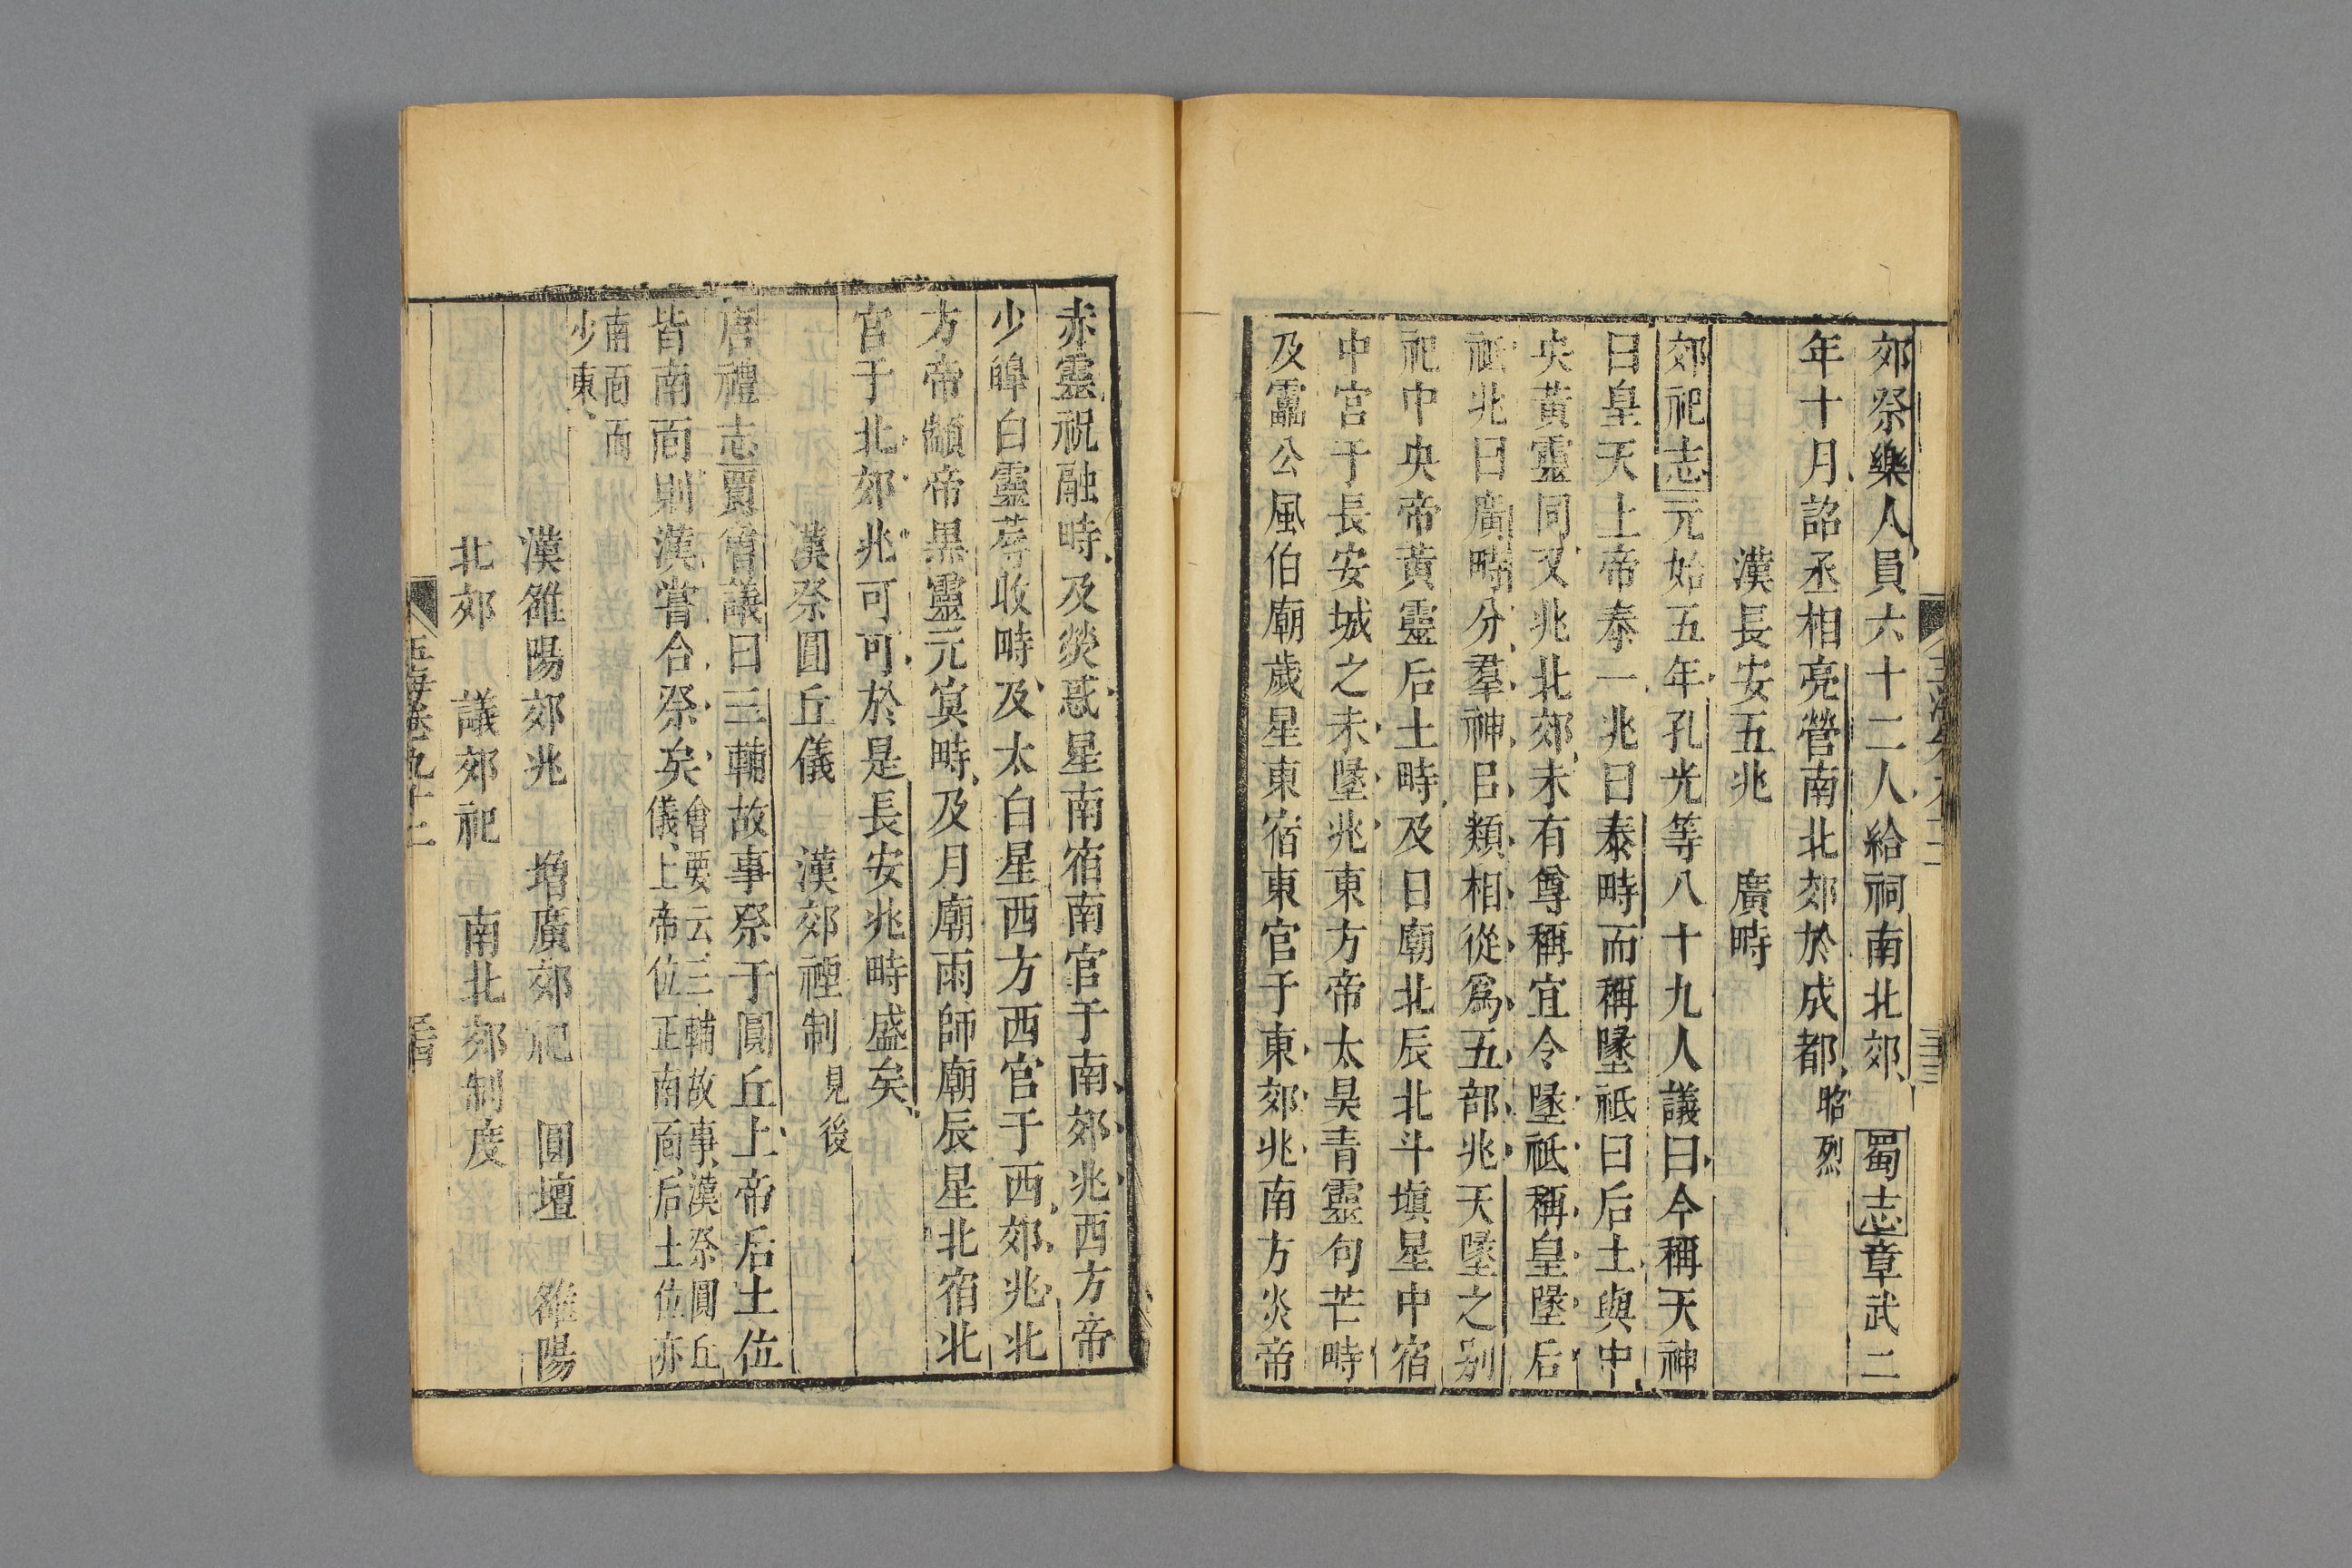 郊祭樂人員六十二人給祠南北郊 蜀志章武二
年十月詔丞相亮營南北郊於成都昭烈
漢長安五兆 廣畤
郊祀志元始五年孔光等八十九人議曰今稱天神
曰皇天上帝泰一兆曰泰畤而稱墬祇曰后土與中
央黃靈同又兆北郊未有尊稱宜令墬祇稱皇墬后
祇兆曰廣畤分羣神㠯類相從爲五部兆天墬之别
祀中央帝黃靈后土畤及日廟北辰北斗塡星中宿
中宮于長安城之未墬兆東方帝太昊青靈句芒畤
及靁公風伯廟歲星東宿東宮于東郊兆南方炎帝
赤靈祝融畤及熒惑星南宿南宮于南郊兆西方帝
少皞白靈蓐收畤及太白星西方西宮于西郊兆北
方帝顓帝黑靈元冥畤及月廟雨師廟辰星北宿北
宮于北郊兆可可於是長安兆畤盛矣
漢祭圓丘儀 漢郊禋制見後
唐禮志賈曾議曰三輔故事祭于圓丘上帝后土位
皆南面則漢嘗合祭矣會要云三輔故事漢祭圓丘
儀上帝位正南面后土位亦
南面而
少東
漢雒陽郊兆 增廣郊祀 圓壇 雒陽
北郊 議郊祀 南北郊制度
玉海卷九十三